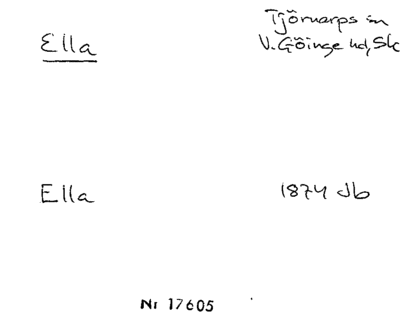 Ella
Tjörnarps sn
V. Göinge hd, Sk
Ella
1874 Jb
Nr 17605